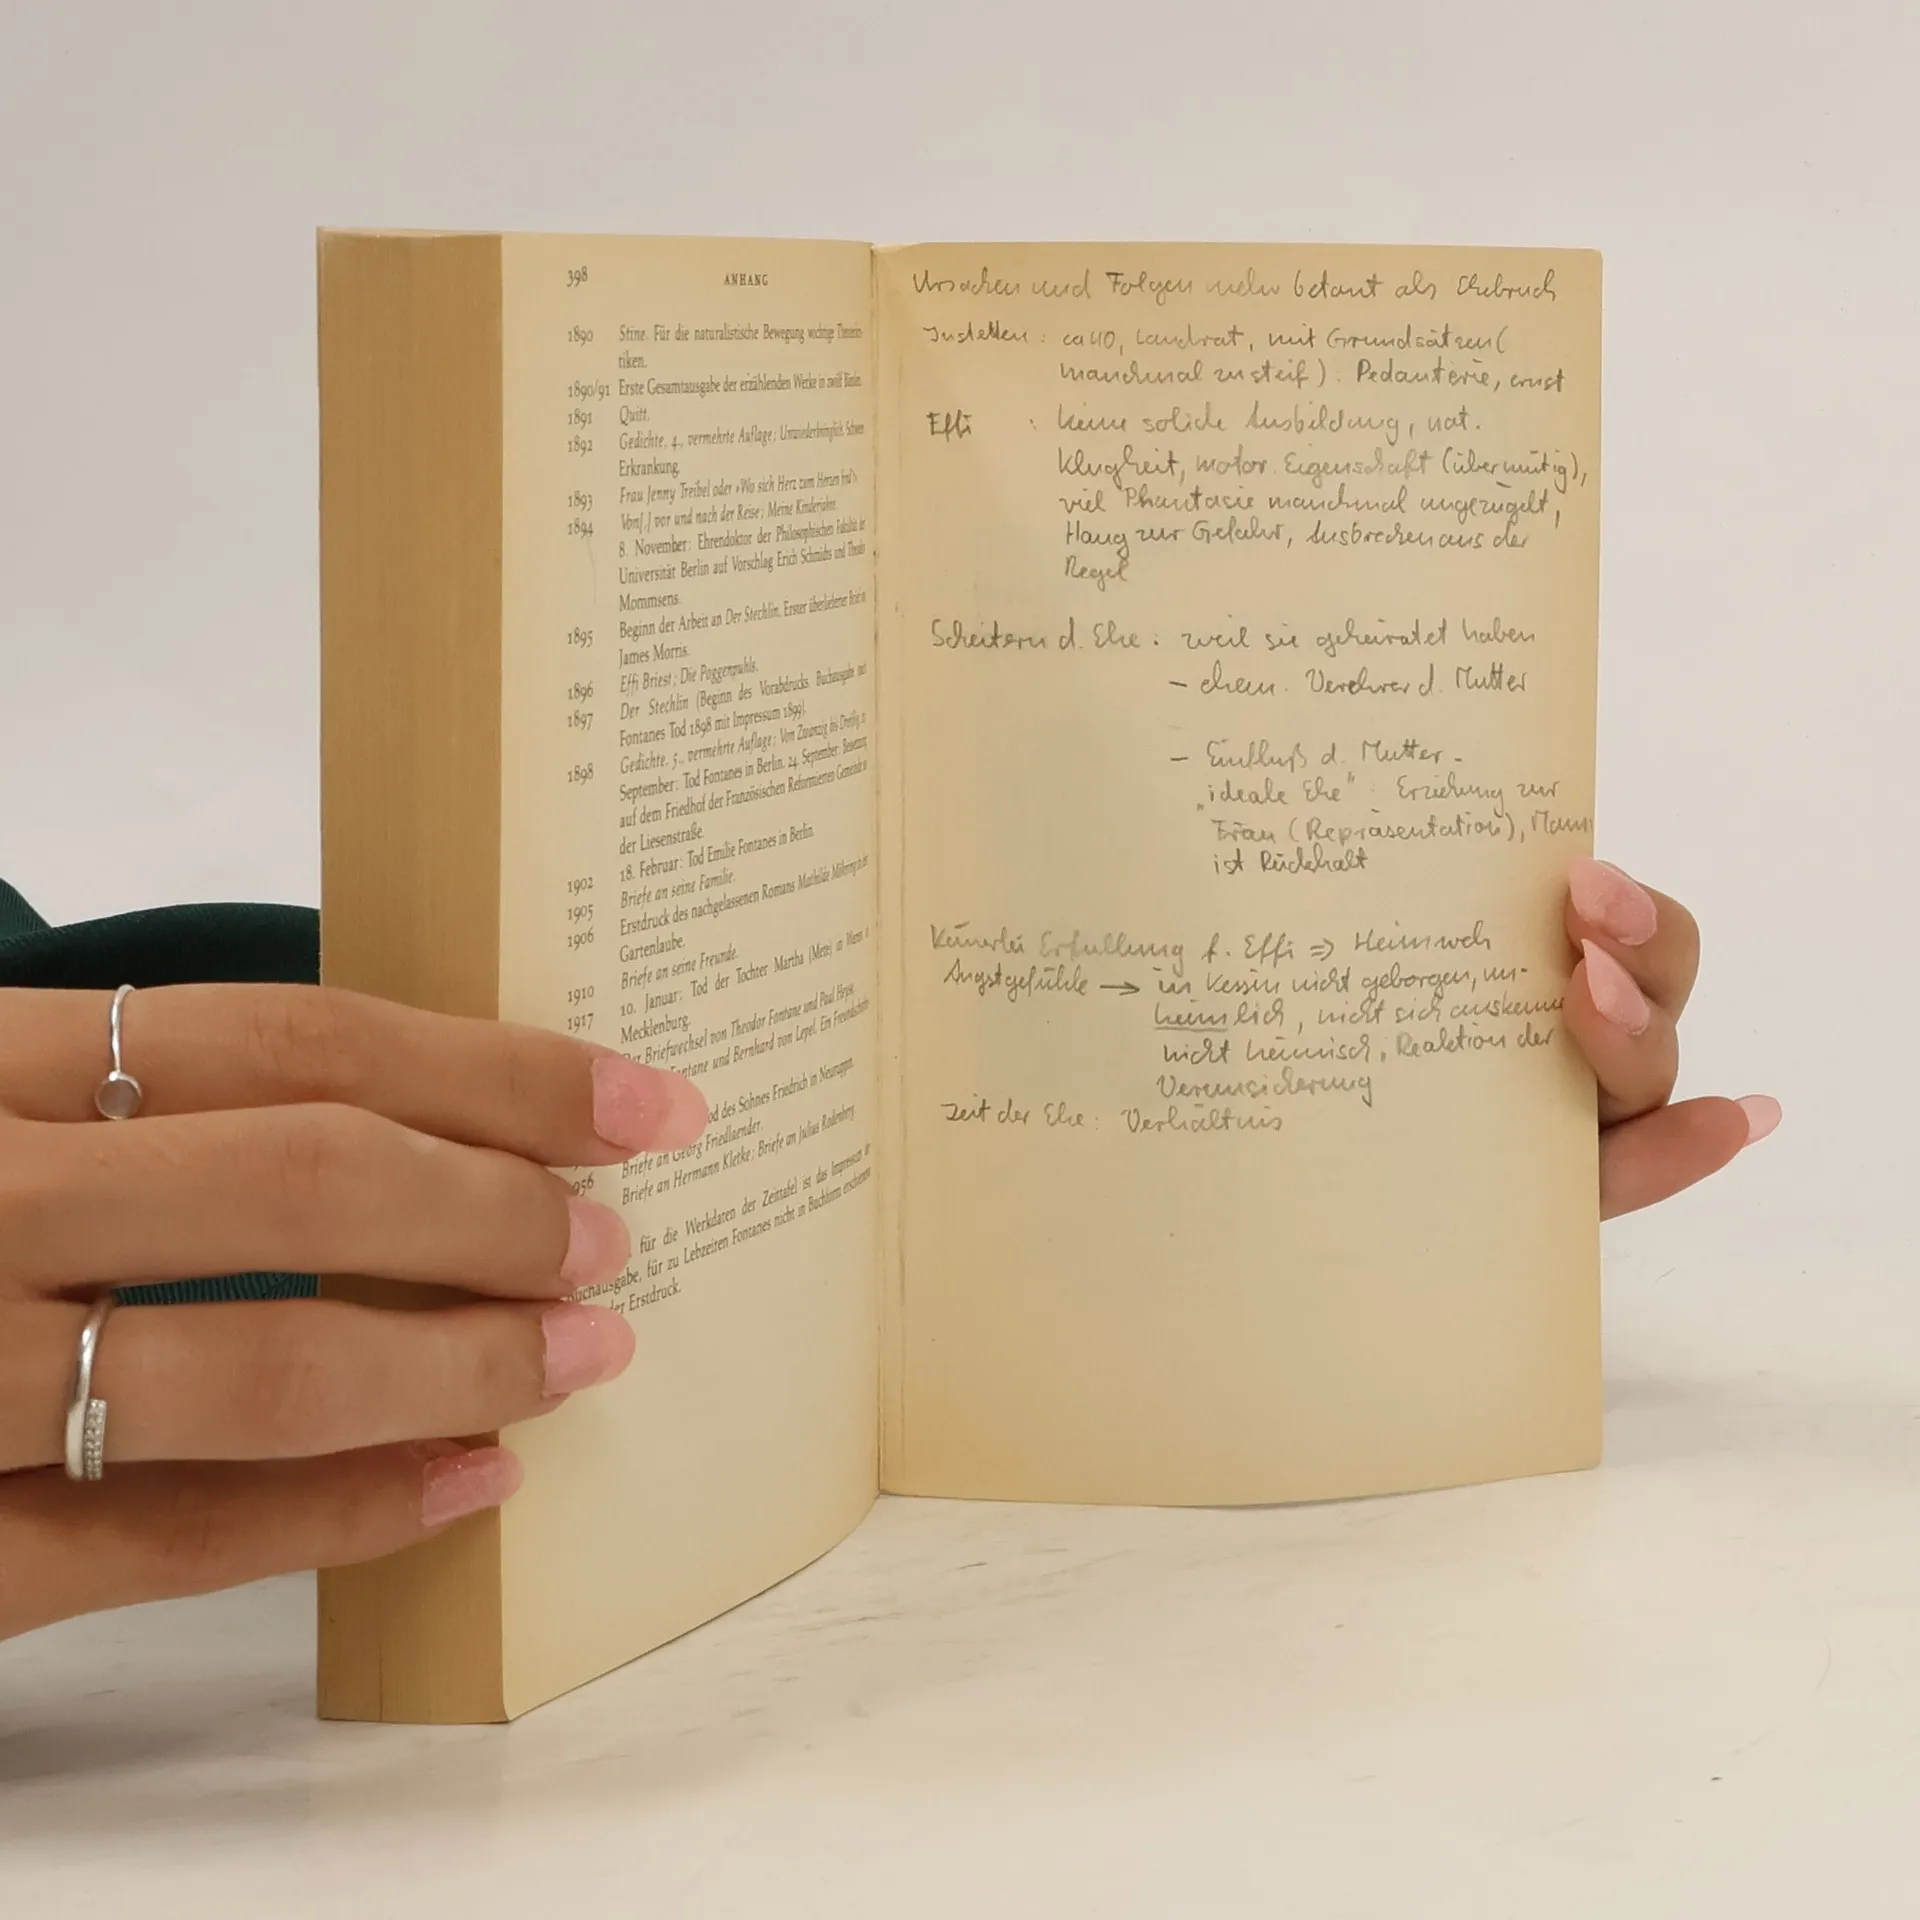 398
ANHANG
1890 Stine. Für die naturalistische Bewegung wichtige
tiken.
1890/91 Erste Gesamtausgabe der erzählenden Werke in zwölf
1891 Quitt.
1892 Gedichte, 4., vermehrte Auflage; Unwiederbringlich. Schwere
Erkrankung.
1893 Frau Jenny Treibel oder »Wo sich Herz zum Herzen
1894 Von[,] vor und nach der Reise; Meine Kinderjahre.
8. November: Ehrendoktor der Philosophischen Fakultät der
Universität Berlin auf Vorschlag Erich Schmidts und Theodor
Mommsens.
1895 Beginn der Arbeit an Der Stechlin. Erster überlieferter Brief an
James Morris.
1896 Effi Briest; Die Poggenpuhls.
1897 Der Stechlin (Beginn des Vorabdrucks. Buchausgabe nach
Fontanes Tod 1898 mit Impressum 1899).
1898 Gedichte, 5., vermehrte Auflage; Von Zwanzig bis Dreißig. 20.
September: Tod Fontanes in Berlin. 24. September:
auf dem Friedhof der Französischen Reformierten Gemeinde in
der Liesenstraße.
1902 18. Februar: Tod Emilie Fontanes in Berlin.
1905 Briefe an seine Familie.
1906 Erstdruck des nachgelassenen Romans Mathilde Möhring in der
Gartenlaube.
1910 Briefe an seine Freunde.
1917 10. Januar: Tod der Tochter Martha (Mete) in Waren
Mecklenburg.
Der Briefwechsel von Theodor Fontane und Paul Heyse.
Fontane und Bernhard von Lepel. Ein Freundschafts
od des Sohnes Friedrich in Neuruppin.
Briefe an Georg Friedlaender.
956 Briefe an Hermann Kletke; Briefe an Julius Rodenberg.
für die Werkdaten der Zeittafel ist das Impressum der
buchausgabe, für zu Lebzeiten Fontanes nicht in Buchform
der Erstdruck.
Ursachen und Folgen mehr betont als Ehebruch
Instetten: ca 40, Landrat, mit Grundsätzen (
manchmal zu steif). Pedanterie, ernst
Effi : keine solide Ausbildung, nat.
Klugheit, motor. Eigenschaft (übermütig),
viel Phantasie manchmal ungezügelt,
Hang zur Gefahr, Ausbrechen aus der
Regel
Scheitern d. Ehe: weil sie geheiratet haben
– ehem. Verehrer d. Mutter
– Einfluß d. Mutter -
„ideale Ehe“: Erziehung zur
Frau (Repräsentation), Mann
ist Rückhalt
Keinerlei Erfüllung f. Effi ⇒ Heimweh
Angstgefühle → in Kessin nicht geborgen, un-
heimlich, nicht sich auskennen
nicht heimisch; Reaktion der
Verunsicherung
Zeit der Ehe: Verhältnis